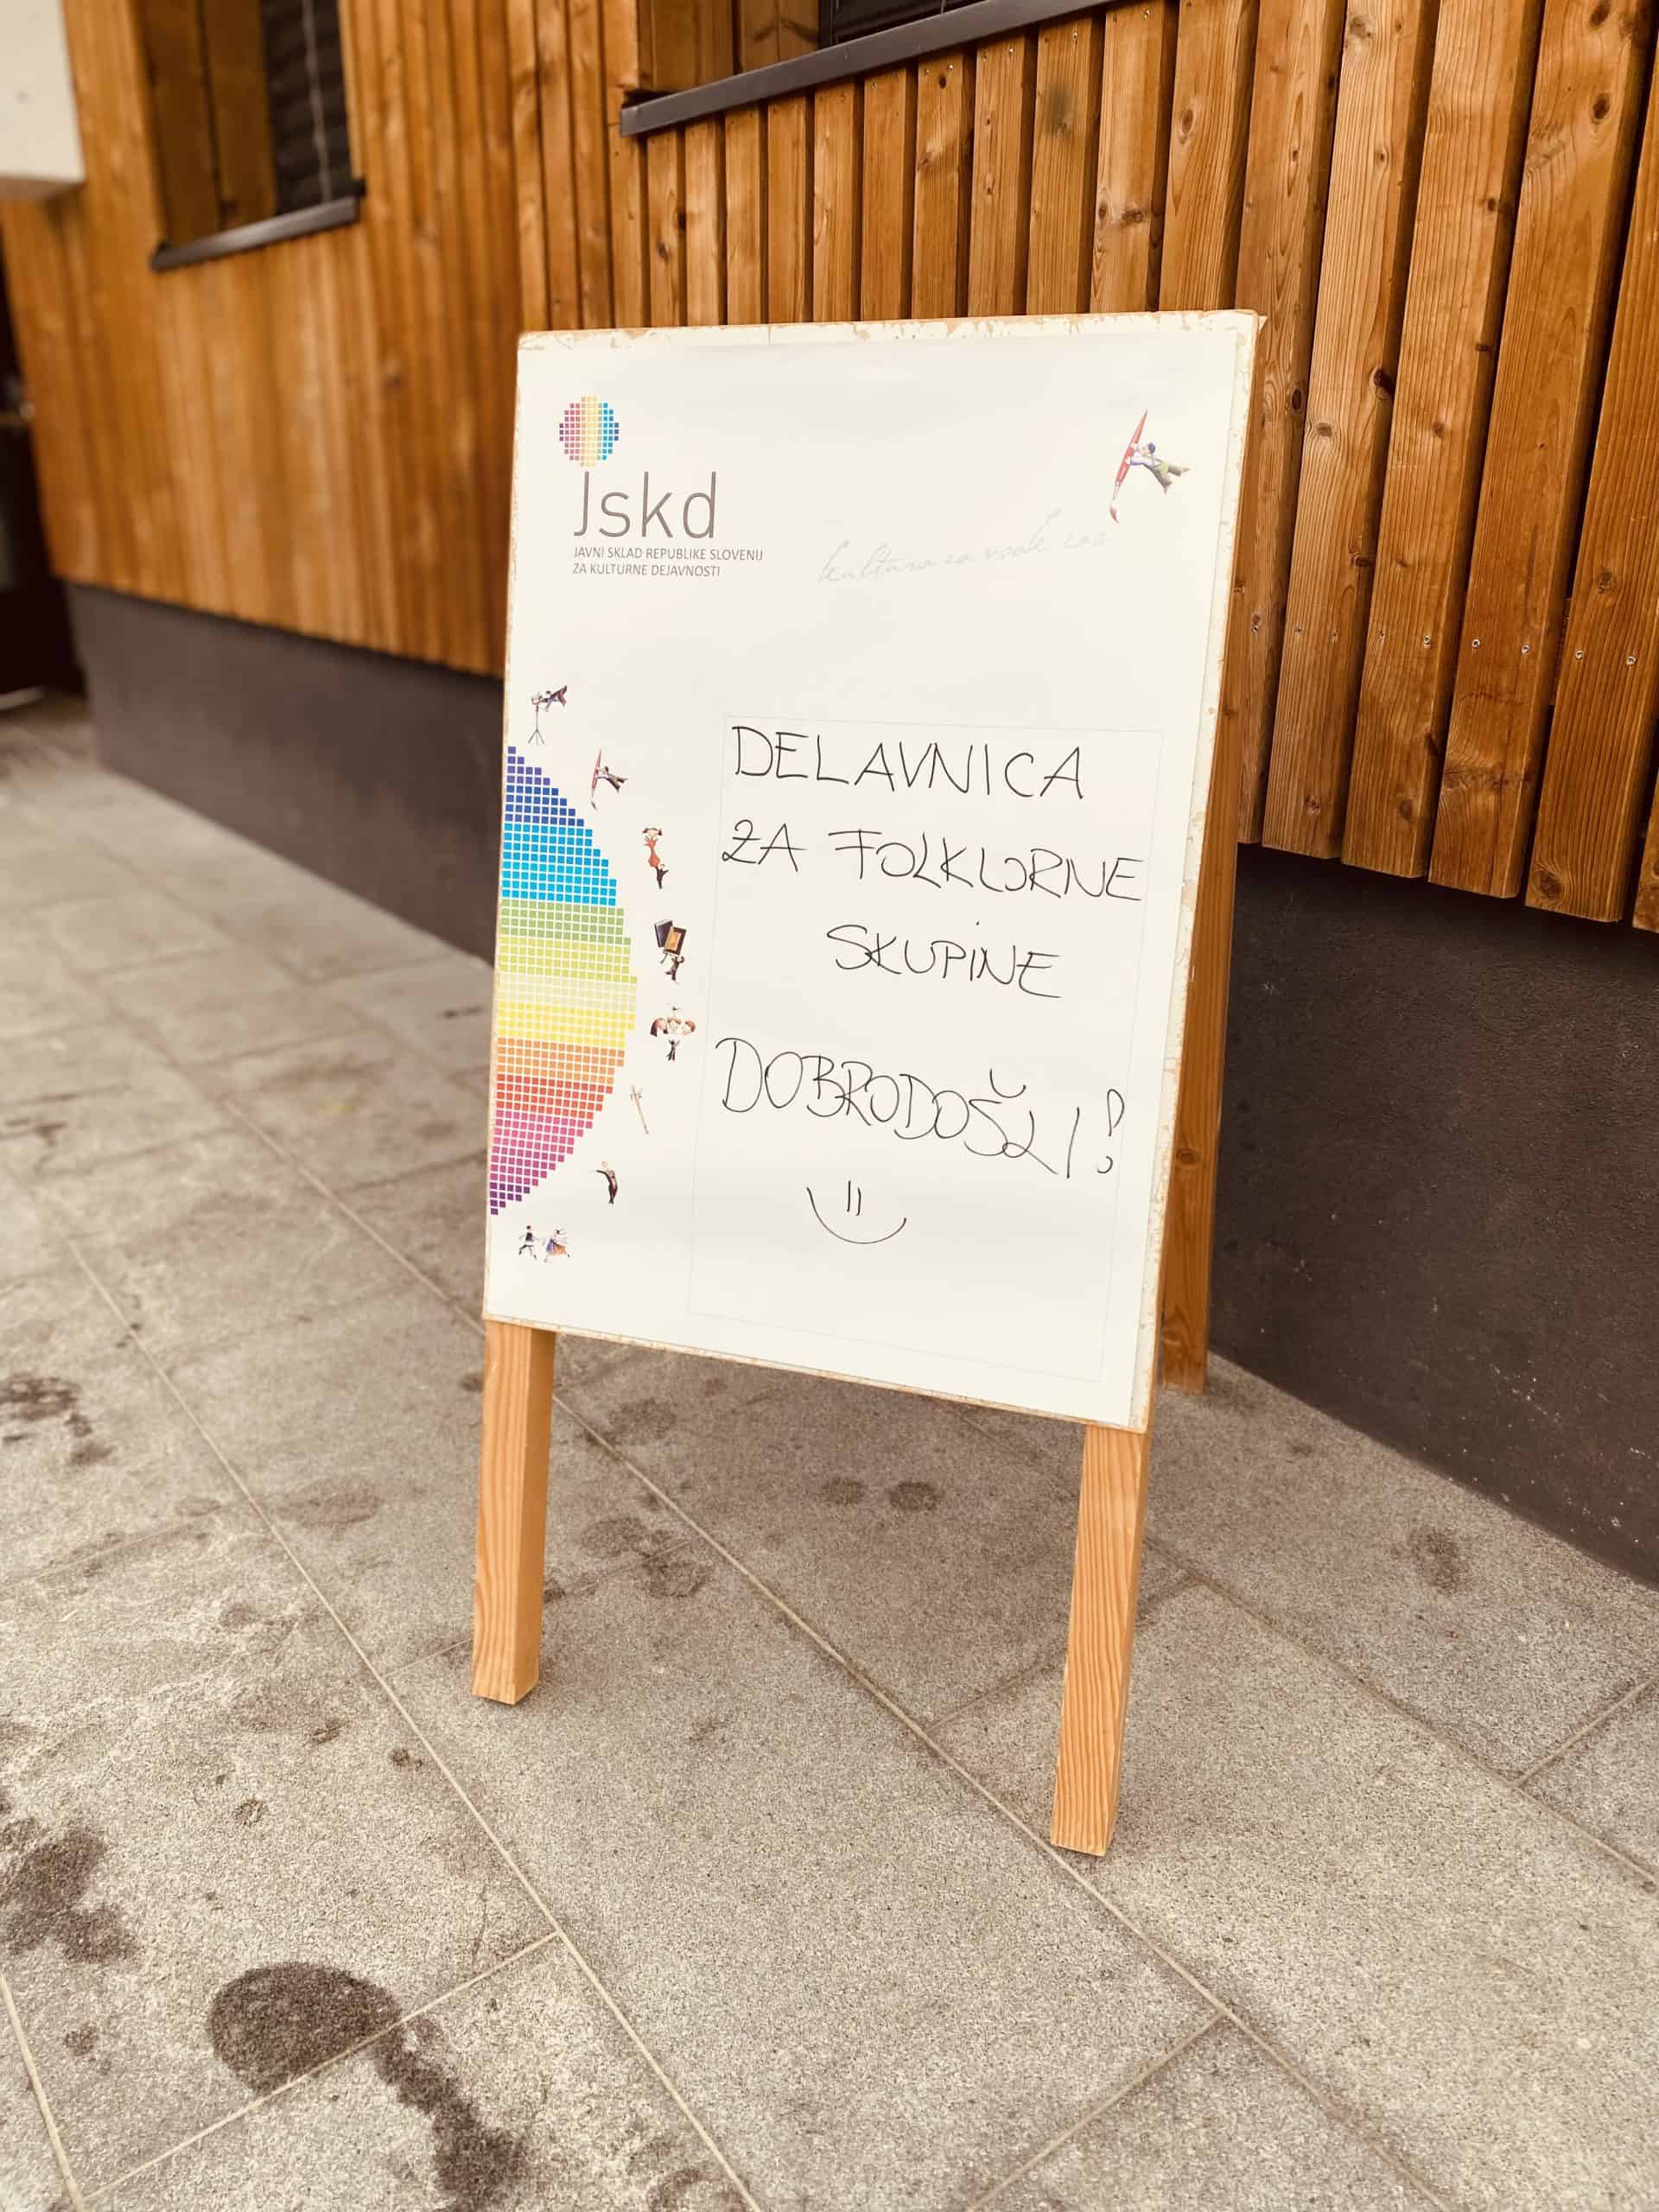 Jskd
JAVNI SKLAD REPUBLIKE SLOVENIJ
ZA KULTURNE DEJAVNOSTI
kultura za vsak čas
DELAVNICA
ZA FOLKLORNE
SKUPINE
DOBRODOŠLI!